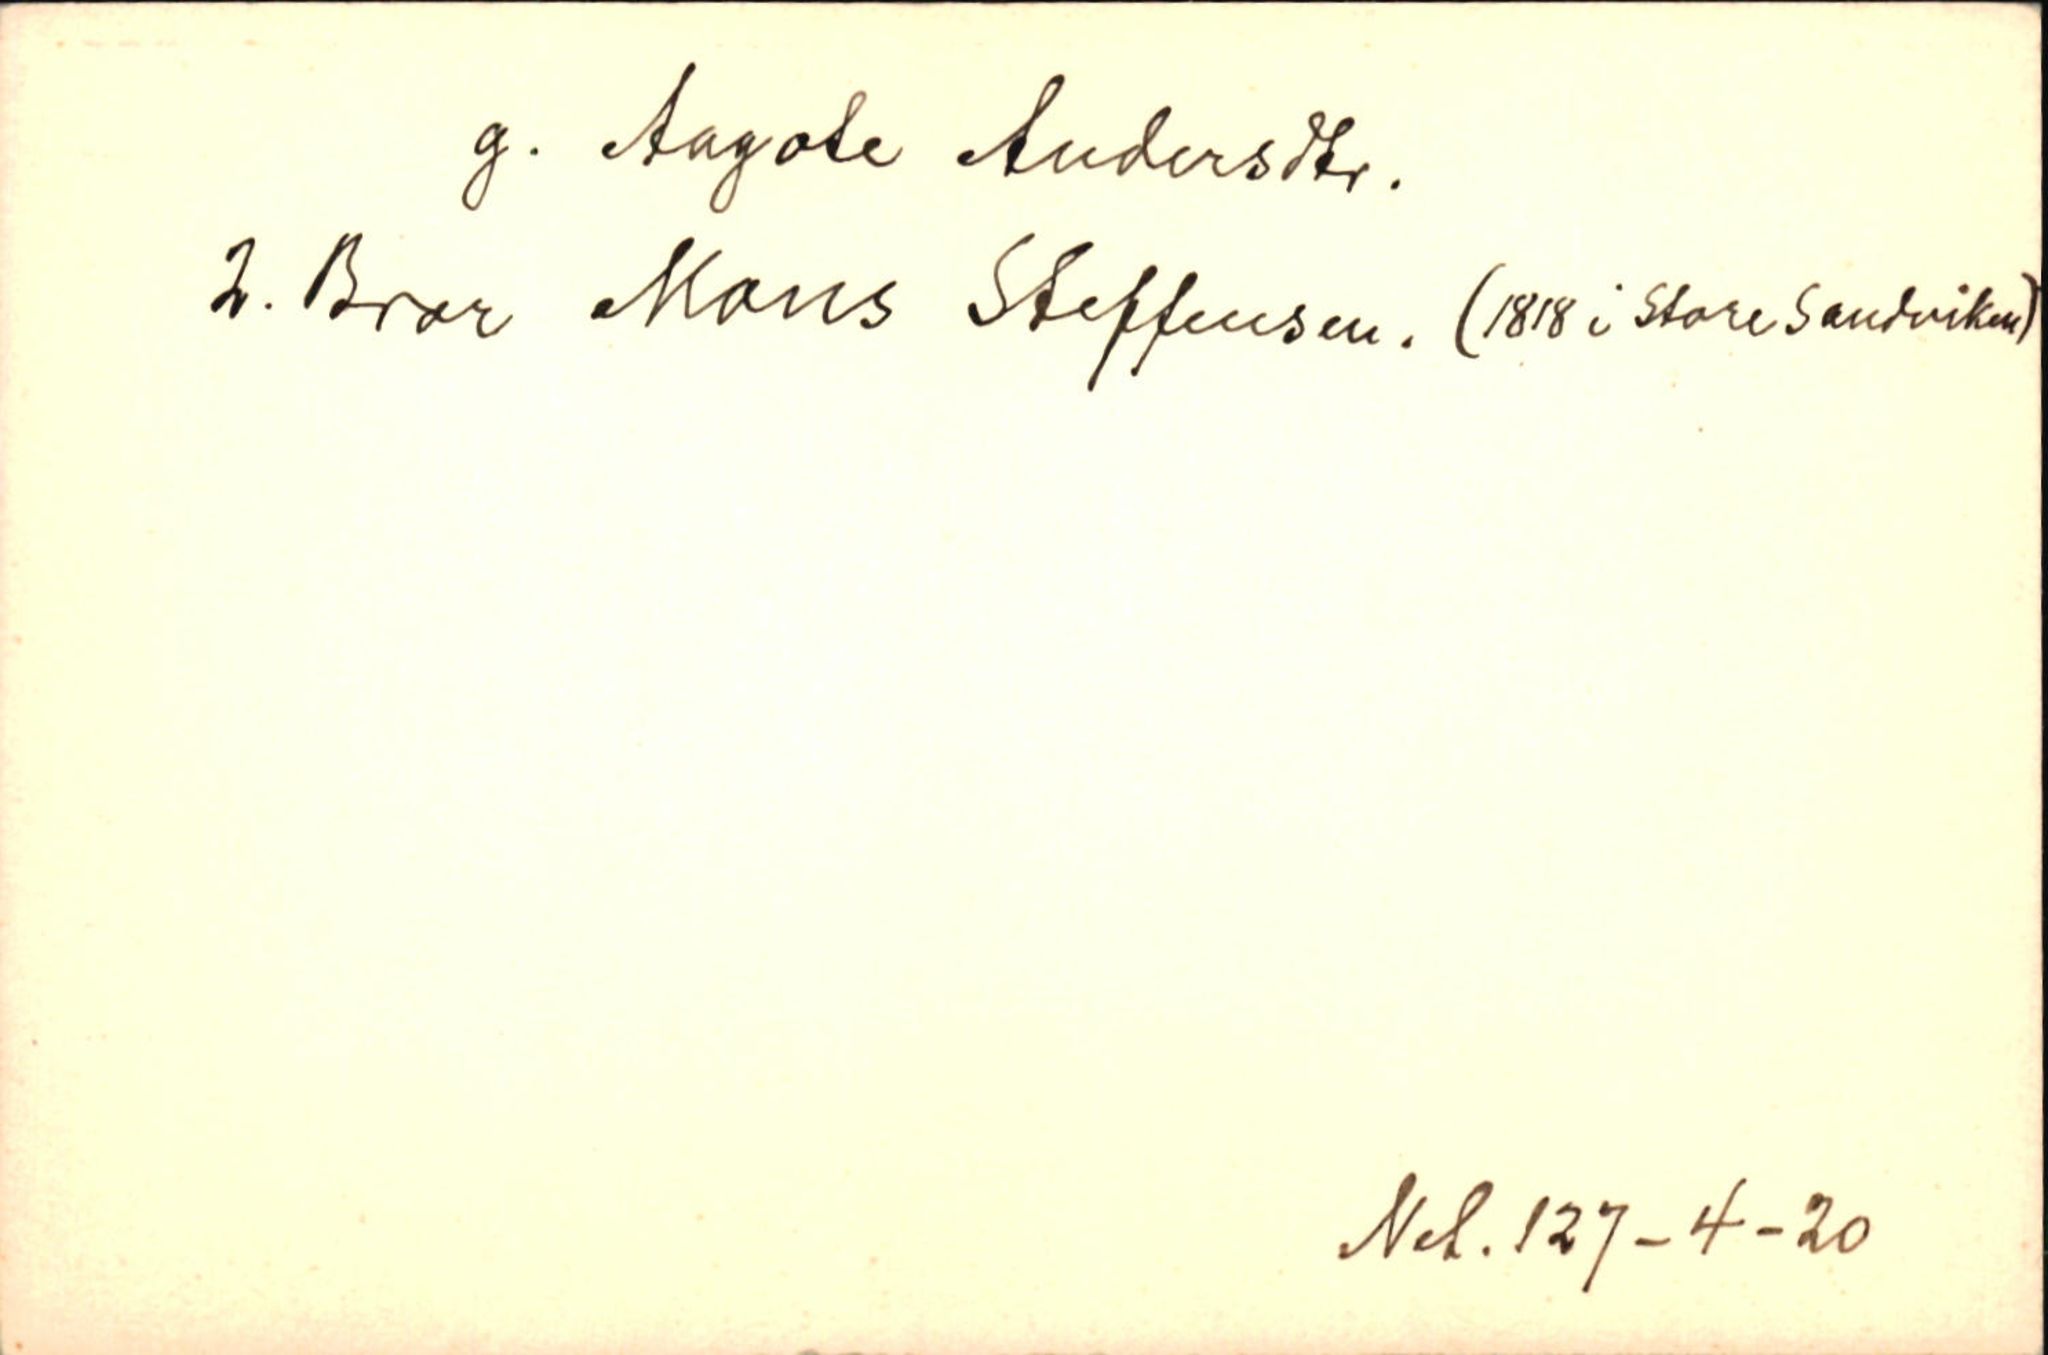 g. Aagote Andersdtr.
2. Bror Mons Steffensen. (1818 i Store Sandviken)
Net. 127-4-20